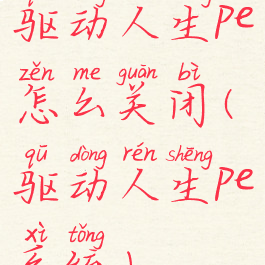 驱动人生pe
zěn me guān bì
怎么关闭(
qū dòng rén shēng
驱动人生pe
xì tǒng
系统)